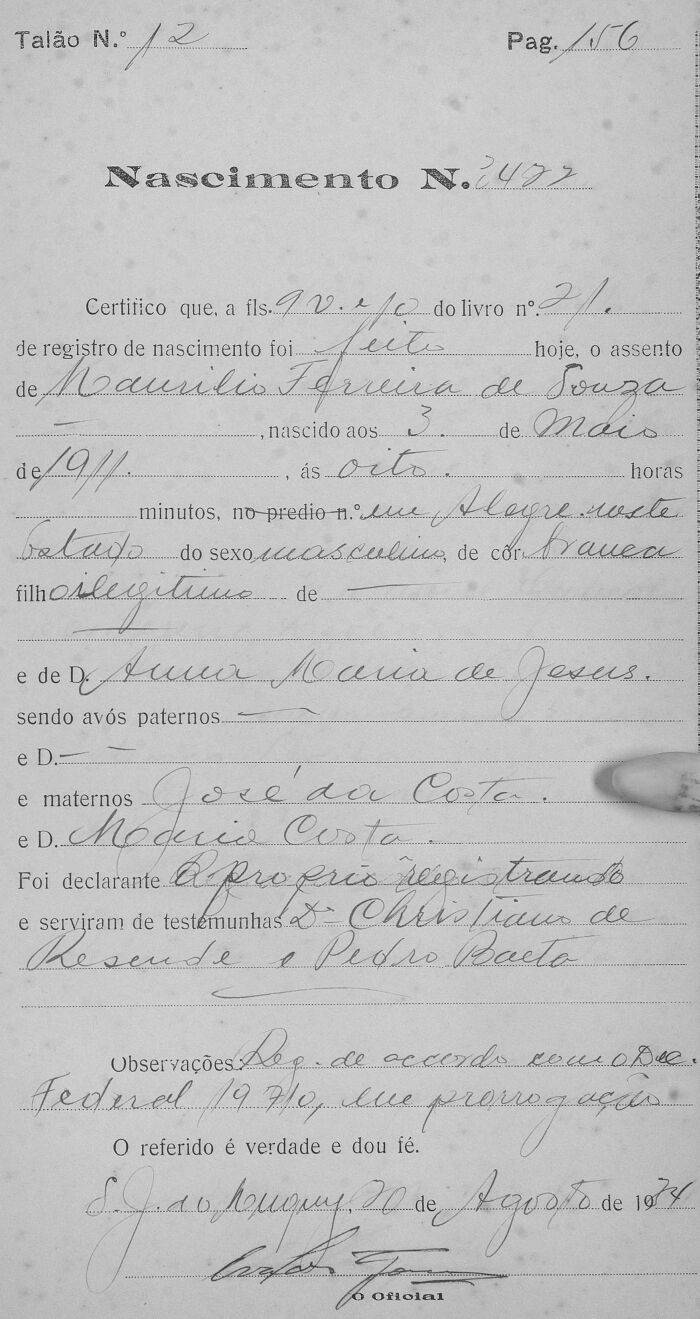 Talão N.º 12 Pag. 156
Nascimento N. 3422
Certifico que, a fls. 9 v. e 10 do livro nº. 21.
de registro de nascimento foi feito hoje, o assento
de Maurilio Ferreira de Souza
— , nascido aos 3. de Maio
de 1911. , ás oito. horas
minutos, no predio n.º em Alegre neste
Estado do sexo masculino, de côr branca
filho ilegitimo de —
e de D. Anna Maria de Jesus.
sendo avós paternos —
e D. — —
e maternos José da Costa.
e D. Maria Costa.
Foi declarante O proprio registrando
e serviram de testemunhas Dr Christiano de
Resende e Pedro Baeta
Observações: Reg. de accordo com o Dec.
Federal 19710, em prorrogação
O referido é verdade e dou fé.
S. J. do Muquy, 20 de Agosto de 1934
O Oficial